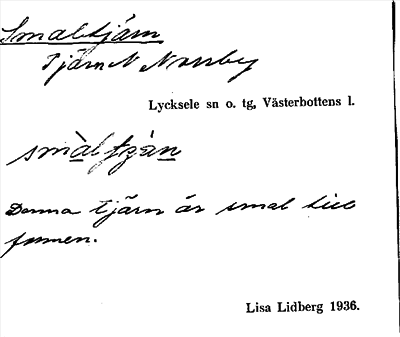 Smaltjärn
Tjärn N Norrby
Lycksele sn o. tg, Västerbottens l.
smàltjä̀n
Denna tjärn är smal till
formen.
Lisa Lidberg 1936.